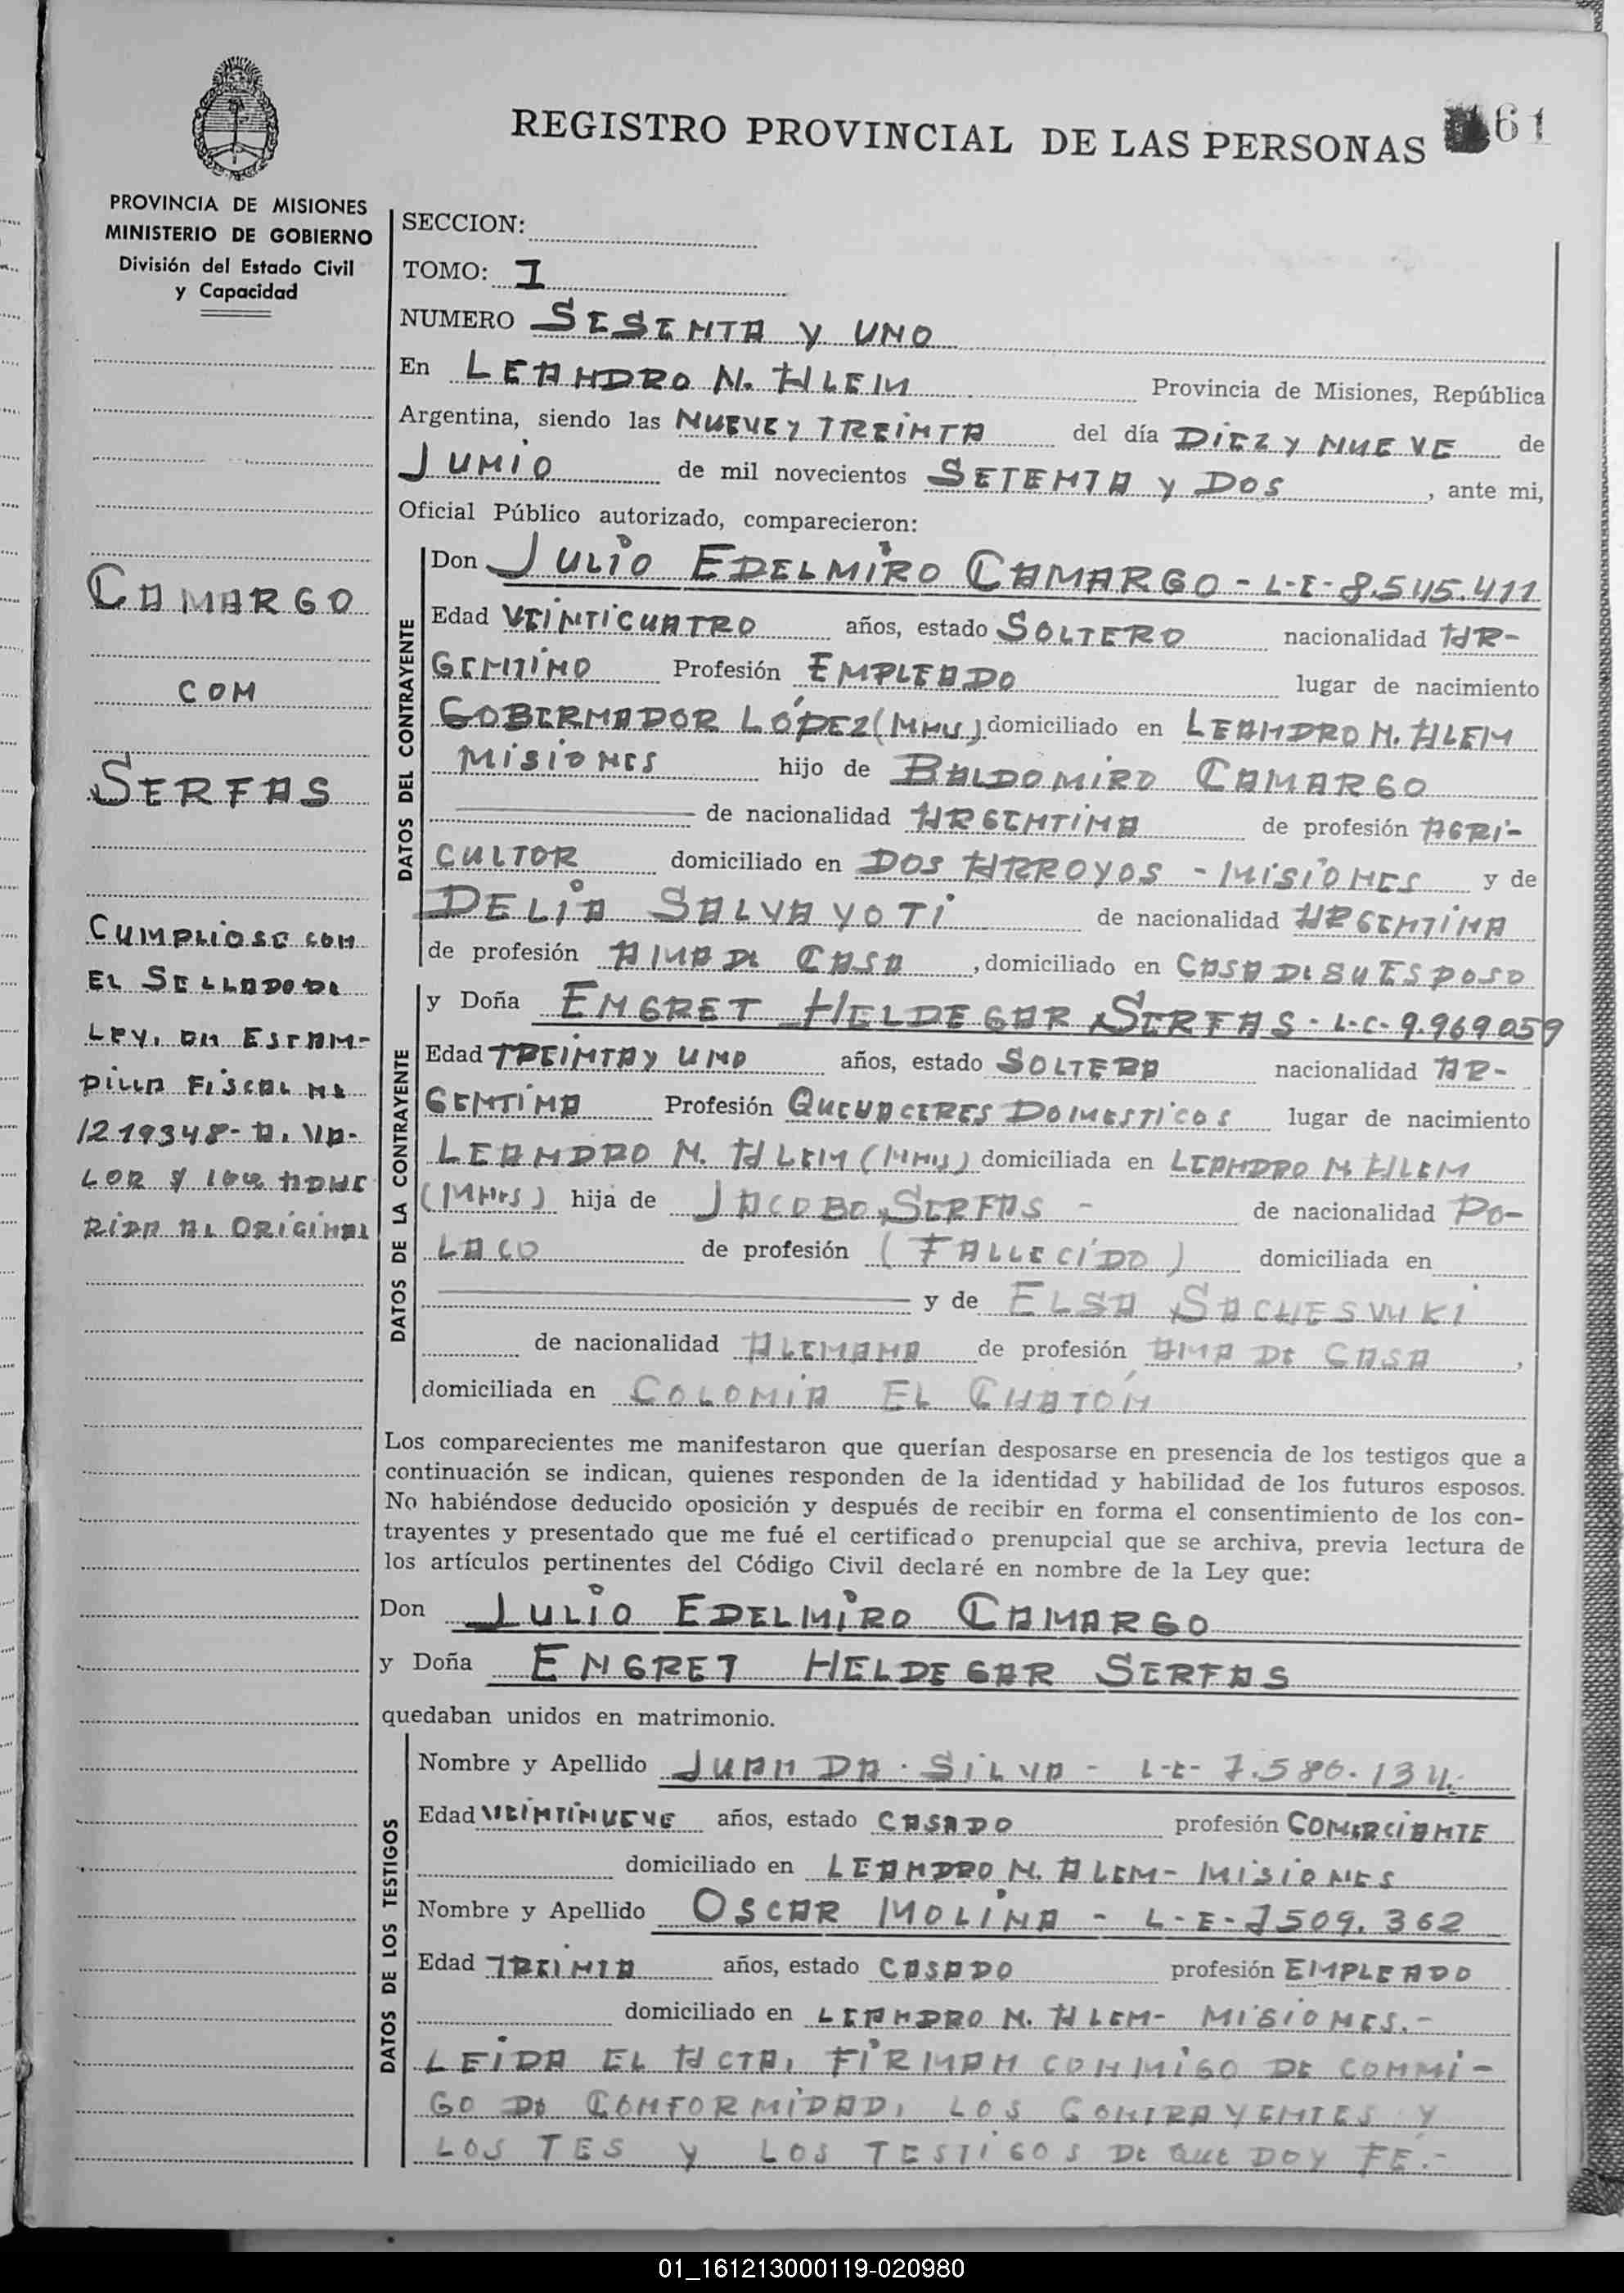 REGISTRO PROVINCIAL DE LAS PERSONAS
61
PROVINCIA DE MISIONES
MINISTERIO DE GOBIERNO
División del Estado Civil
y Capacidad
CAMARGO
CON
SERFAS
CUMPLIOSE CON
EL SELLADO DE
LEY, EN ESTAM-
PILLA FISCAL Nº
1219348- A. VA-
LOR $ ADHE
RIDA AL ORIGINAL
SECCION:
TOMO: I
NUMERO SESENTA Y UNO
En LEANDRO N. ALEM Provincia de Misiones, República
Argentina, siendo las NUEVE Y TREINTA del día DIEZ Y NUEVE de
JUNIO de mil novecientos SETENTA Y DOS, ante mi,
Oficial Público autorizado, comparecieron:
DATOS DEL CONTRAYENTE
Don JULIO EDELMIRO CAMARGO - L-E- 8.545.411
Edad VEINTICUATRO años, estado SOLTERO nacionalidad AR-
GENTINO Profesión EMPLEADO lugar de nacimiento
GOBERNADOR LÓPEZ (MNES) domiciliado en LEANDRO N. ALEM
MISIONES hijo de BALDOMIRO CAMARGO
de nacionalidad ARGENTINA de profesión AGRI-
CULTOR domiciliado en DOS ARROYOS - MISIONES y de
DELIA SALVAYOTI de nacionalidad ARGENTINA
de profesión AMA DE CASA, domiciliado en CASA DE SU ESPOSO
DATOS DE LA CONTRAYENTE
y Doña ENGRET HELDEGAR SERFAS - L-C- 9.969.059
Edad TREINTA Y UNO años, estado SOLTERA nacionalidad AR-
GENTINA Profesión QUEUACERES DOMESTICOS lugar de nacimiento
LEANDRO N. ALEM (MNES) domiciliada en LEANDRO N. ALEM
(MNES) hija de JACOBO SERFAS - de nacionalidad PO-
LACO de profesión (FALLECIDO) domiciliada en
y de ELSA SACHESVUKI
de nacionalidad ALEMANA de profesión AMA DE CASA,
domiciliada en COLONIA EL CHATÓN
Los comparecientes me manifestaron que querían desposarse en presencia de los testigos que a
continuación se indican, quienes responden de la identidad y habilidad de los futuros esposos.
No habiéndose deducido oposición y después de recibir en forma el consentimiento de los con-
trayentes y presentado que me fué el certificado prenupcial que se archiva, previa lectura de
los artículos pertinentes del Código Civil declaré en nombre de la Ley que:
Don JULIO EDELMIRO CAMARGO
y Doña ENGRET HELDEGAR SERFAS
quedaban unidos en matrimonio.
DATOS DE LOS TESTIGOS
Nombre y Apellido JUAN DA SILVA - L-E- 7.586.134.-
Edad VEINTINUEVE años, estado CASADO profesión COMERCIANTE
domiciliado en LEANDRO N. ALEM- MISIONES
Nombre y Apellido OSCAR MOLINA - L-E-7509.362
Edad TREINTA años, estado CASADO profesión EMPLEADO
domiciliado en LEANDRO N. ALEM- MISIONES.-
LEIDA EL ACTA, FIRMAN CONMIGO DE CONMI-
GO DE CONFORMIDAD, LOS CONTRAYENTES Y
LOS TES Y LOS TESTIGOS DE QUE DOY FE.-
01_161213000119-020980